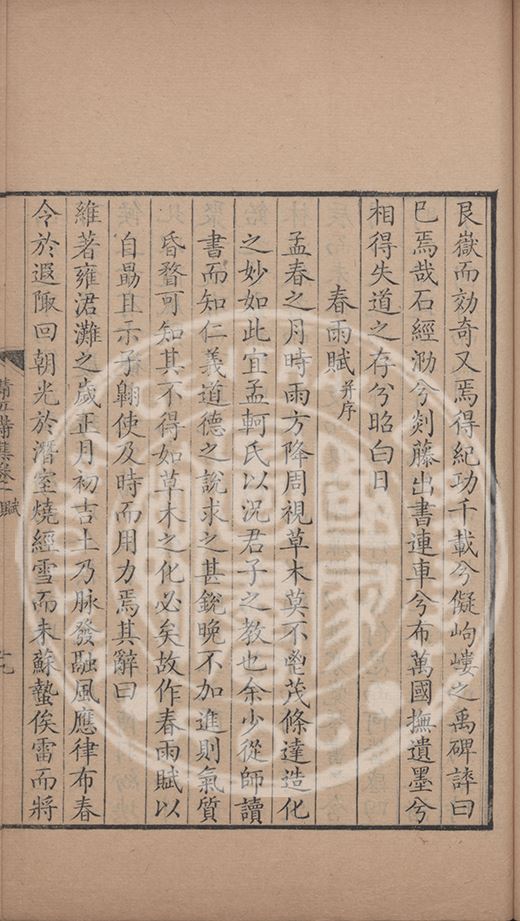 艮嶽而効奇又焉得紀功千載兮儗岣嶁之禹碑誶曰
已焉哉石經泐兮剡藤出書連車兮布萬國撫遺墨兮
相得失道之存兮昭白日
春雨賦并序
孟春之月時雨方降周視草木莫不鬯茂條達造化
之妙如此宜孟軻氏以況君子之教也余少從師讀
書而知仁義道德之說求之甚銳晚不加進則氣質
昏瞀可知其不得如草木之化必矣故作春雨賦以
自勗且示子翺使及時而用力焉其辭曰
維著雍涒灘之歲正月初吉土乃脉發融風應律布春
令於遐陬回朝光於潛室燒經雪而未蘇蟄俟雷而將
清江詩集卷一 賦